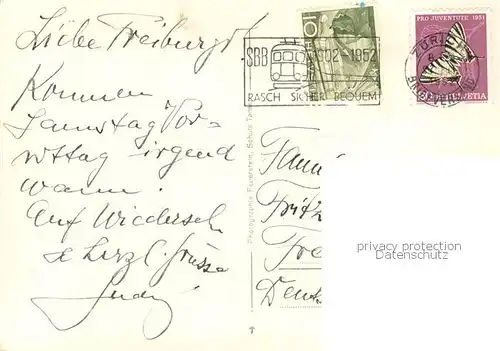 Liebe Freiburger!
Kommen
Samstag Vor=
mttag irgend
wann!
Auf Wiedersehn
& herzl. Grüsse
SBB 1902-1952
RASCH SICHER BEQUEM
10
PRO JUVENTUTE 1951
HELVETIA
ZÜRICH
Photographie Feuerstein, Schuls Tarasp
Famil
Fritz
Fre
Deut
privacy protection
Datenschutz